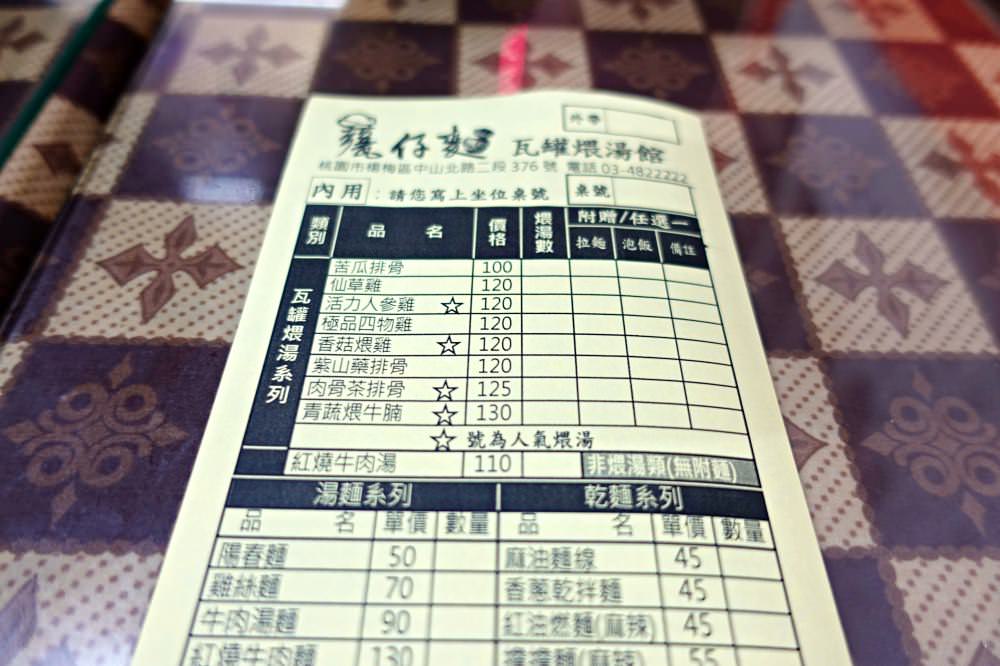 外帶
仔麵 瓦罐煨湯館
桃園市楊梅區中山北路二段 376 號 電話 03-4822222
內用：請您寫上坐位桌號 桌號
類別 品名 價格 煨湯數 附贈/任選一
拉麵 泡飯 備註
瓦罐煨湯系列
苦瓜排骨 100
仙草雞 120
活力人參雞 ☆ 120
極品四物雞 120
香菇煨雞 ☆ 120
紫山藥排骨 120
肉骨茶排骨 ☆ 125
青蔬煨牛腩 ☆ 130
☆ 號為人氣煨湯
紅燒牛肉湯 110 非煨湯類(無附麵)
湯麵系列 乾麵系列
品名 單價 數量 品名 單價 數量
陽春麵 50 麻油麵線 45
雞絲麵 70 香蔥乾拌麵 45
牛肉湯麵 90 紅油燃麵(麻辣) 45
紅燒牛肉麵 130 麵(麻辣) 55